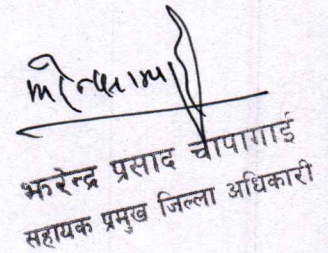 झरेन्द्र प्रसाद चापागाई
सहायक प्रमुख जिल्ला अधिकारी